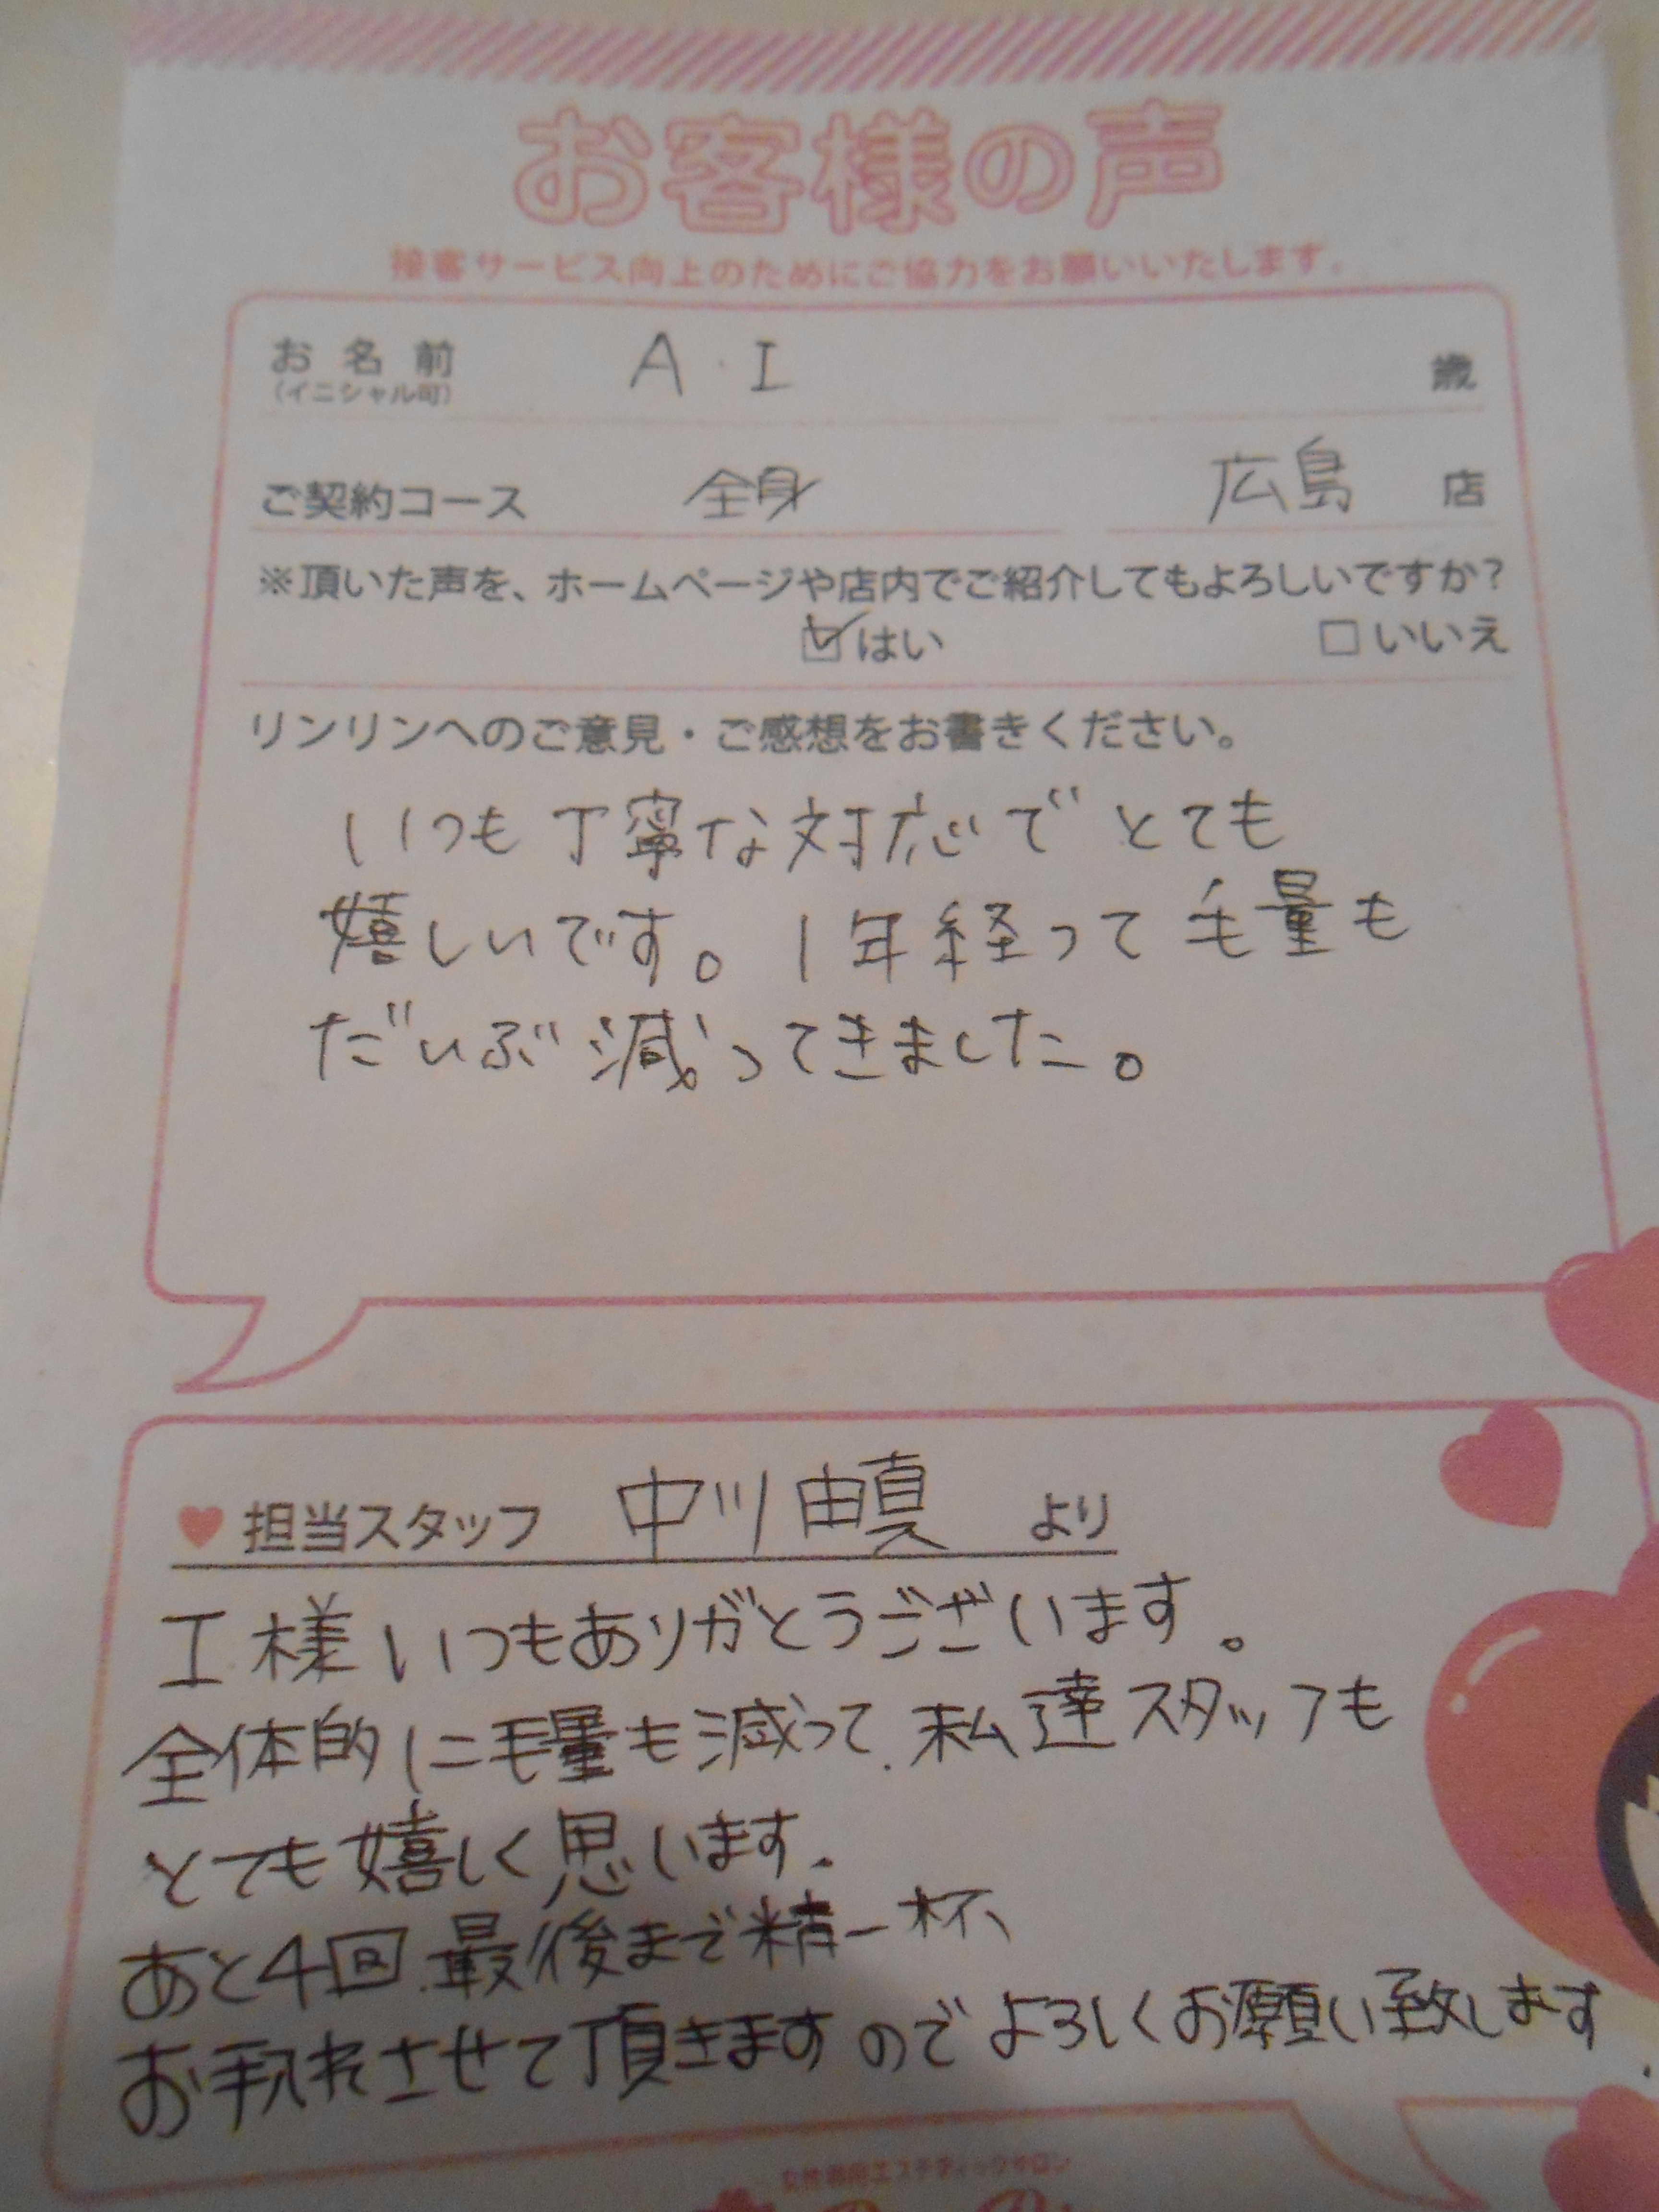 お客様の声
接客サービス向上のためにご協力をお願いいたします。
お名前 A・I 歳
(イニシャル可)
ご契約コース 全身 広島 店
※頂いた声を、ホームページや店内でご紹介してもよろしいですか？
☑はい □いいえ
リンリンへのご意見・ご感想をお書きください。
いつも丁寧な対応でとても
嬉しいです。1年経って毛量も
だいぶ減ってきました。
♥担当スタッフ 中川由真 より
I様いつもありがとうございます。
全体的に毛量も減って、私達スタッフも
とても嬉しく思います。
あと4回、最後まで精一杯、
お手入れさせて頂きますのでよろしくお願い致します。
女性専用エステティックサロン